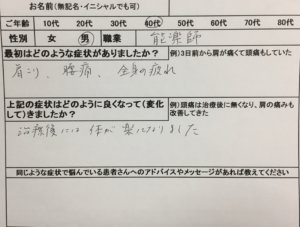 お名前(無記名・イニシャルでも可)
ご年齢 10代 20代 30代 40代 50代 60代 70代 80代
性別 女 ・ 男 職業 能楽師
最初はどのような症状がありましたか? 例)3日前から肩が痛くて頭痛もしていた
肩こり、腰痛、全身の疲れ
上記の症状はどのように良くなって(変化して)きましたか? 例)頭痛は治療後に無くなり、肩の痛みも改善してきた
治療後には体が楽になりました
同じような症状で悩んでいる患者さんへのアドバイスやメッセージがあれば教えてください